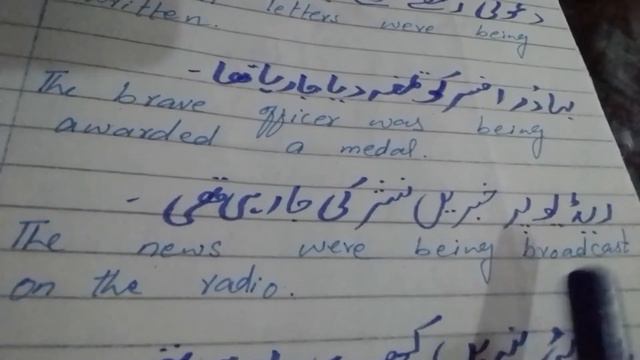 دعوتی
written. letters were being
بہادر افسر کو تمغہ دیا جا رہا تھا -
The brave officer was being
awarded a medal.
ریڈیو پر خبریں نشر کی جا رہی تھی -
The news were being broadcast
on the radio.